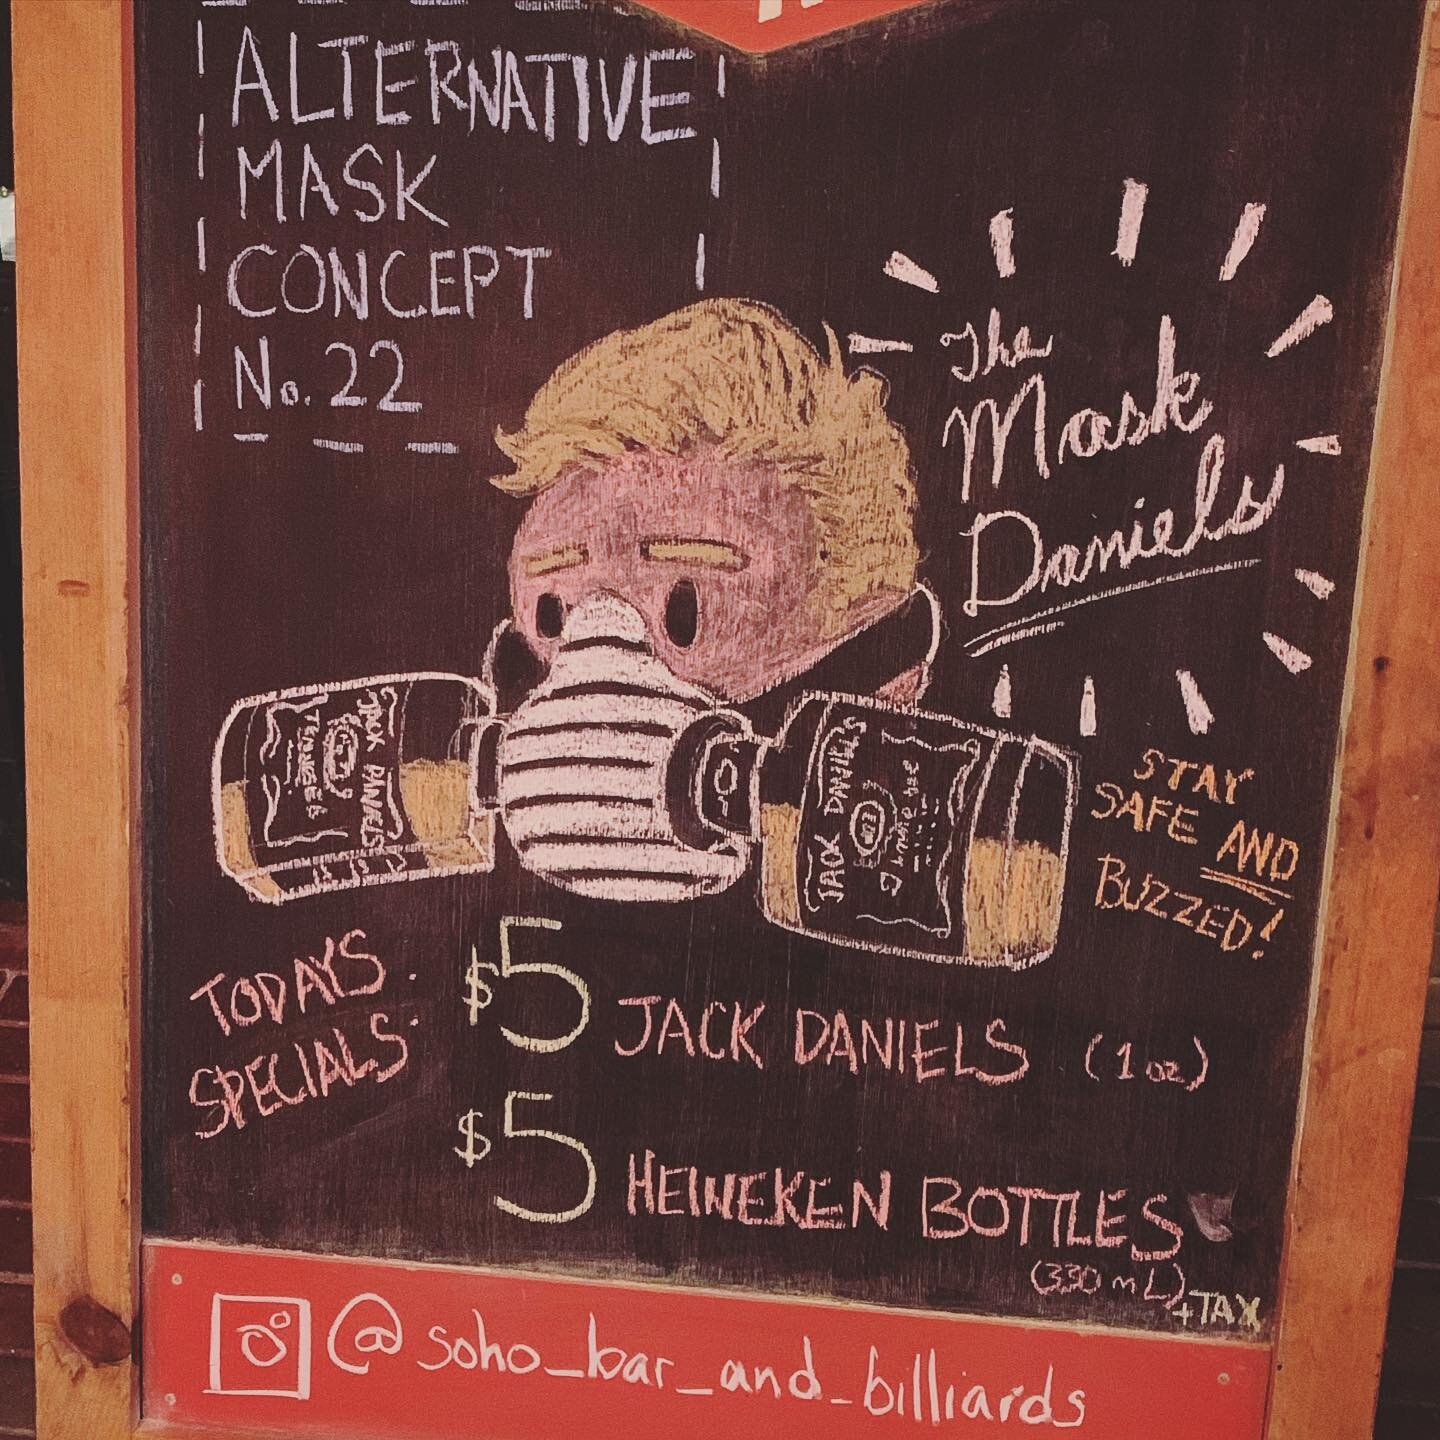 ALTERNATIVE
MASK
CONCEPT
No. 22
The
Mask
Daniels
JACK DANIELS
JACK DANIELS
STAY
SAFE AND
BUZZED!
TODAYS
SPECIALS:
$5 JACK DANIELS (1 oz)
$5 HEINEKEN BOTTLES
(330 mL)
+TAX
@soho_bar_and_billiards